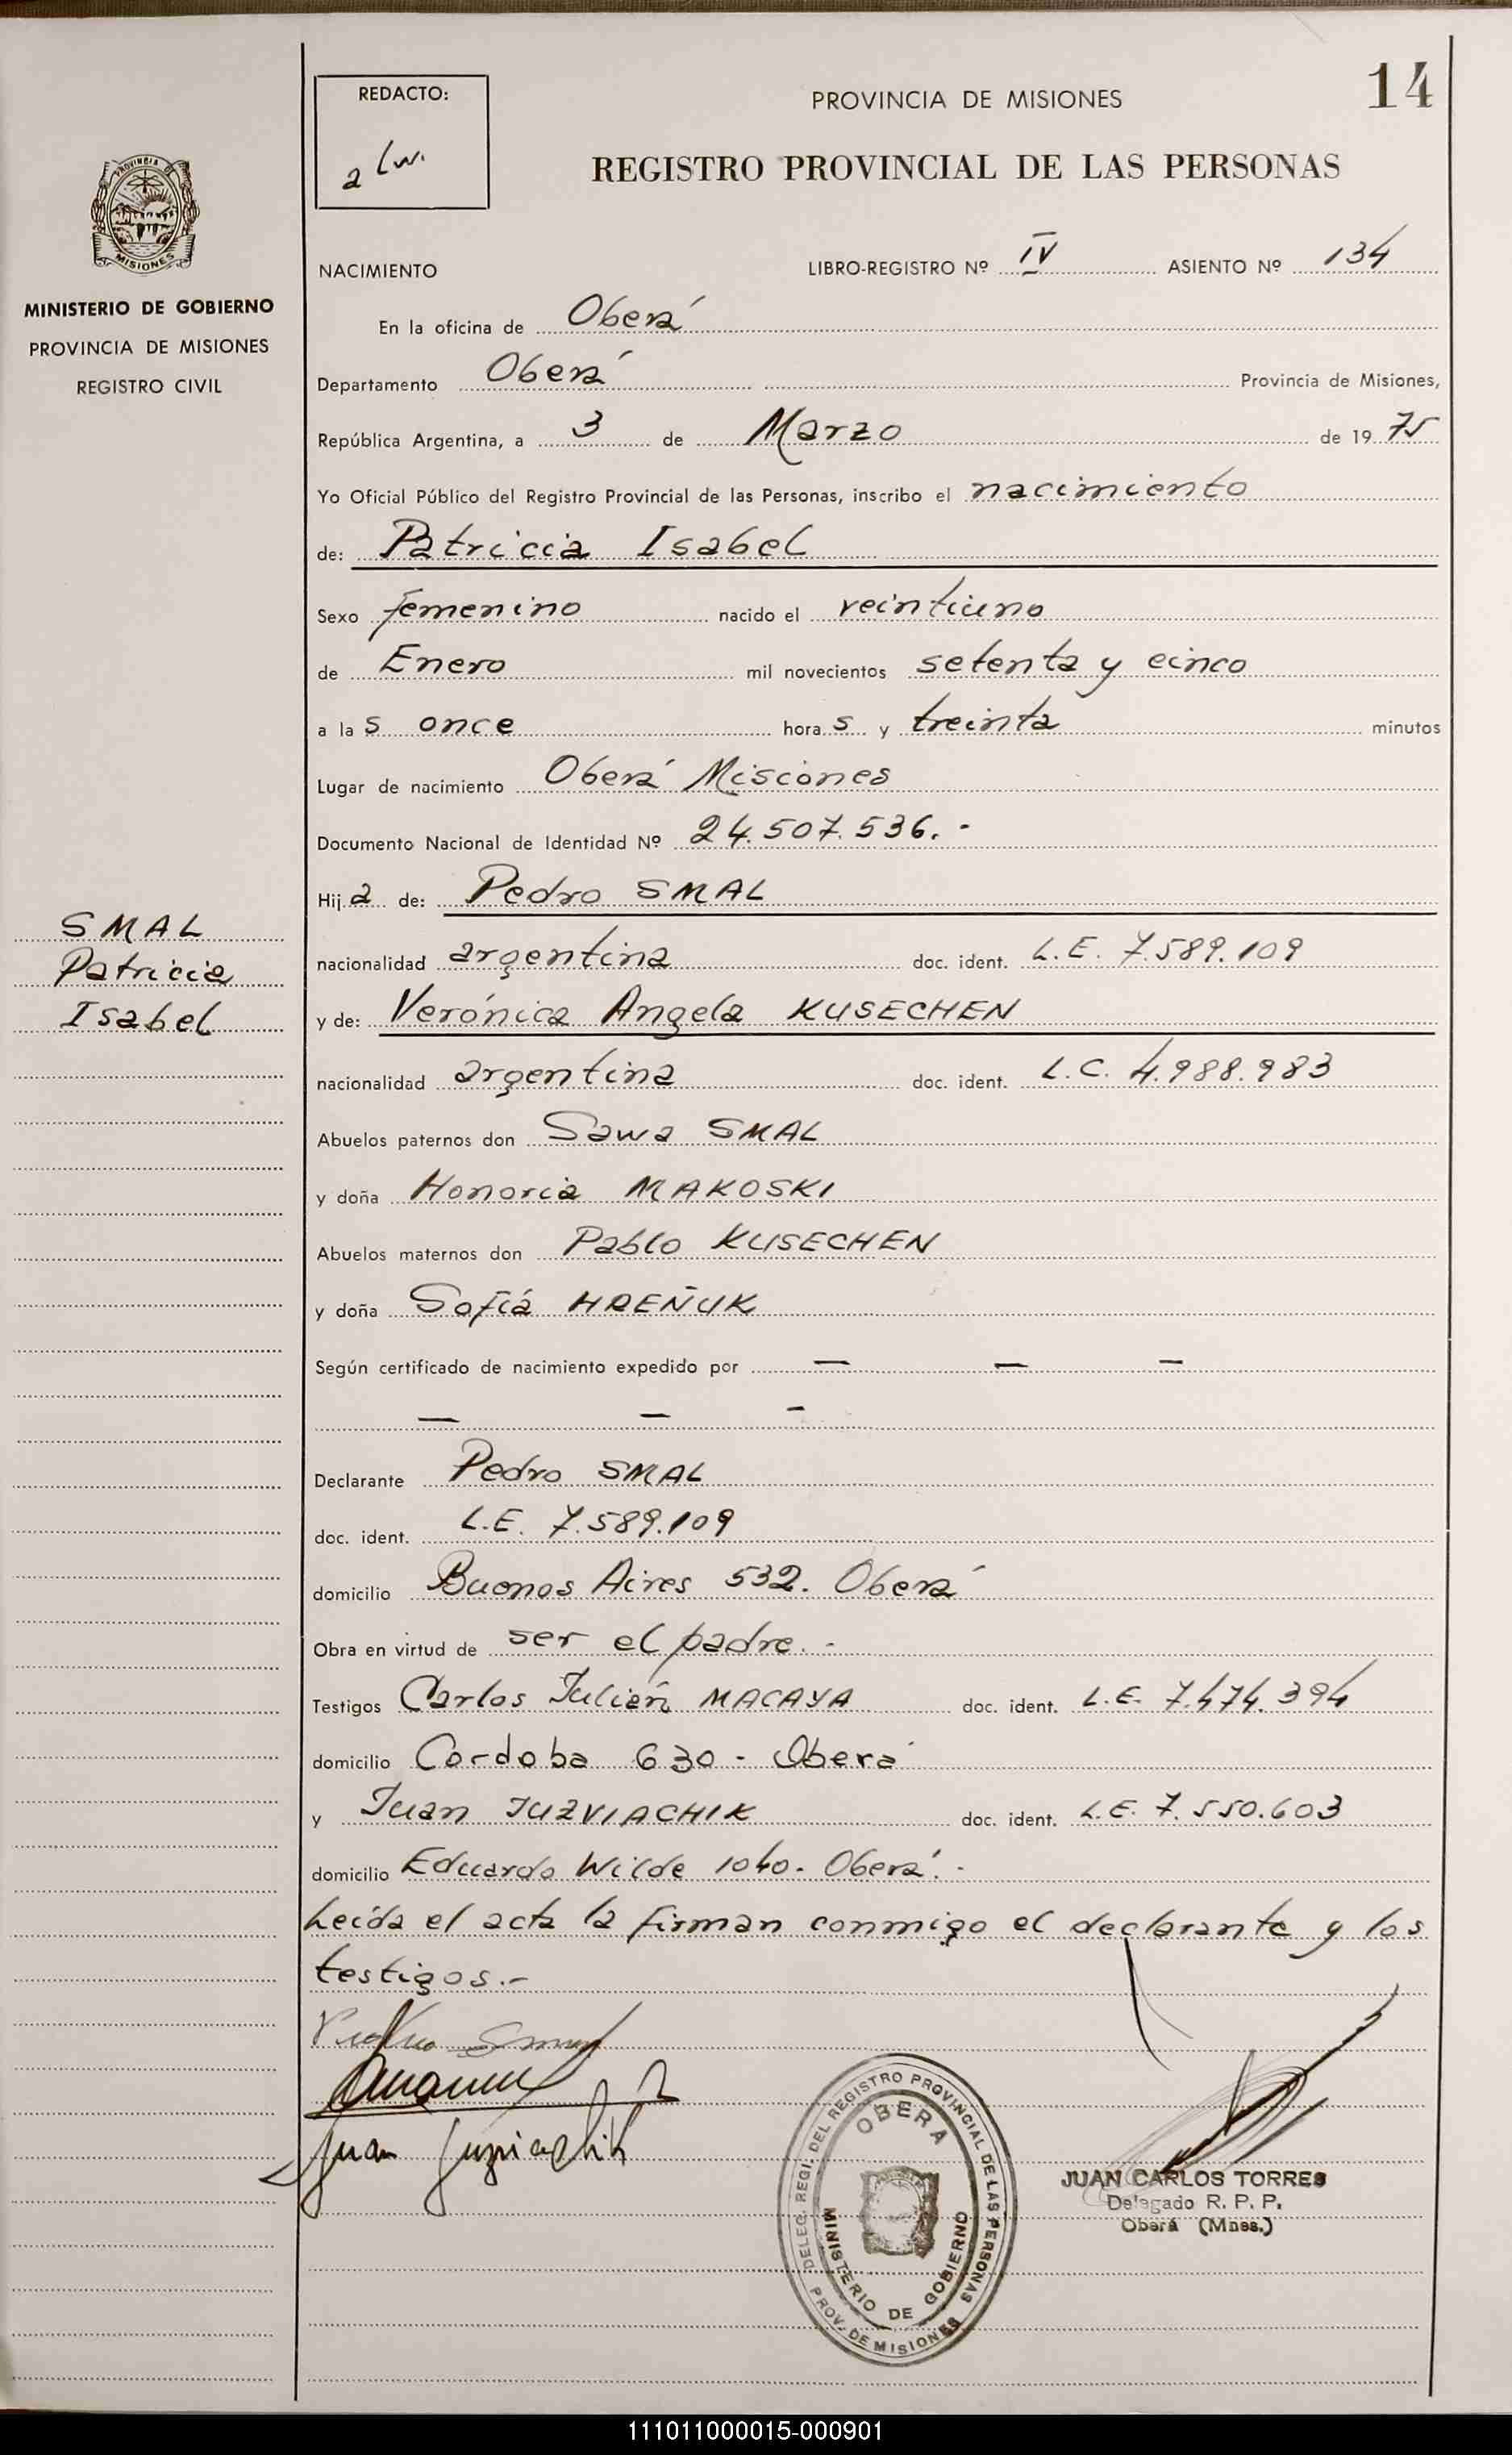 14
REDACTO:
PROVINCIA DE MISIONES
REGISTRO PROVINCIAL DE LAS PERSONAS
PROVINCIA
MISIONES
MINISTERIO DE GOBIERNO
PROVINCIA DE MISIONES
REGISTRO CIVIL
NACIMIENTO LIBRO-REGISTRO Nº IV ASIENTO Nº 134
En la oficina de Oberá
Departamento Oberá Provincia de Misiones,
República Argentina, a 3 de Marzo de 1975
Yo Oficial Público del Registro Provincial de las Personas, inscribo el nacimiento
de: Patricia Isabel
Sexo femenino nacido el veintiuno
de Enero mil novecientos setenta y cinco
a las once horas y treinta minutos
Lugar de nacimiento Oberá Misiones
Documento Nacional de Identidad Nº 24.507.536.-
Hija de: Pedro SMAL
SMAL
Patricia
Isabel
nacionalidad argentina doc. ident. L.E. 7.589.109
y de: Verónica Angela KUSECHEN
nacionalidad argentina doc. ident. L.C. 4.988.983
Abuelos paternos don Sawa SMAL
y doña Honoria MAKOSKI
Abuelos maternos don Pablo KUSECHEN
y doña Sofiá HREÑUK
Según certificado de nacimiento expedido por — — —
— — -
Declarante Pedro SMAL
doc. ident. L.E. 7.589.109
domicilio Buenos Aires 532. Oberá
Obra en virtud de ser el padre.-
Testigos Carlos Julián MACAYA doc. ident. L.E. 7.474.394
domicilio Cordoba 630 - Oberá
y Juan JUZVIACHIK doc. ident. L.E. 7.550.603
domicilio Eduardo Wilde 1040. Oberá.-
Leída el acta la firman conmigo el declarante y los
testigos.-
Juan
DELEG. REGI. DEL REGISTRO PROVINCIAL DE LAS PERSONAS
OBERA
MINISTERIO DE GOBIERNO
PROV. DE MISIONES
JUAN CARLOS TORRES
Delegado R. P. P.
Oberá (Mnes.)
111011000015-000901